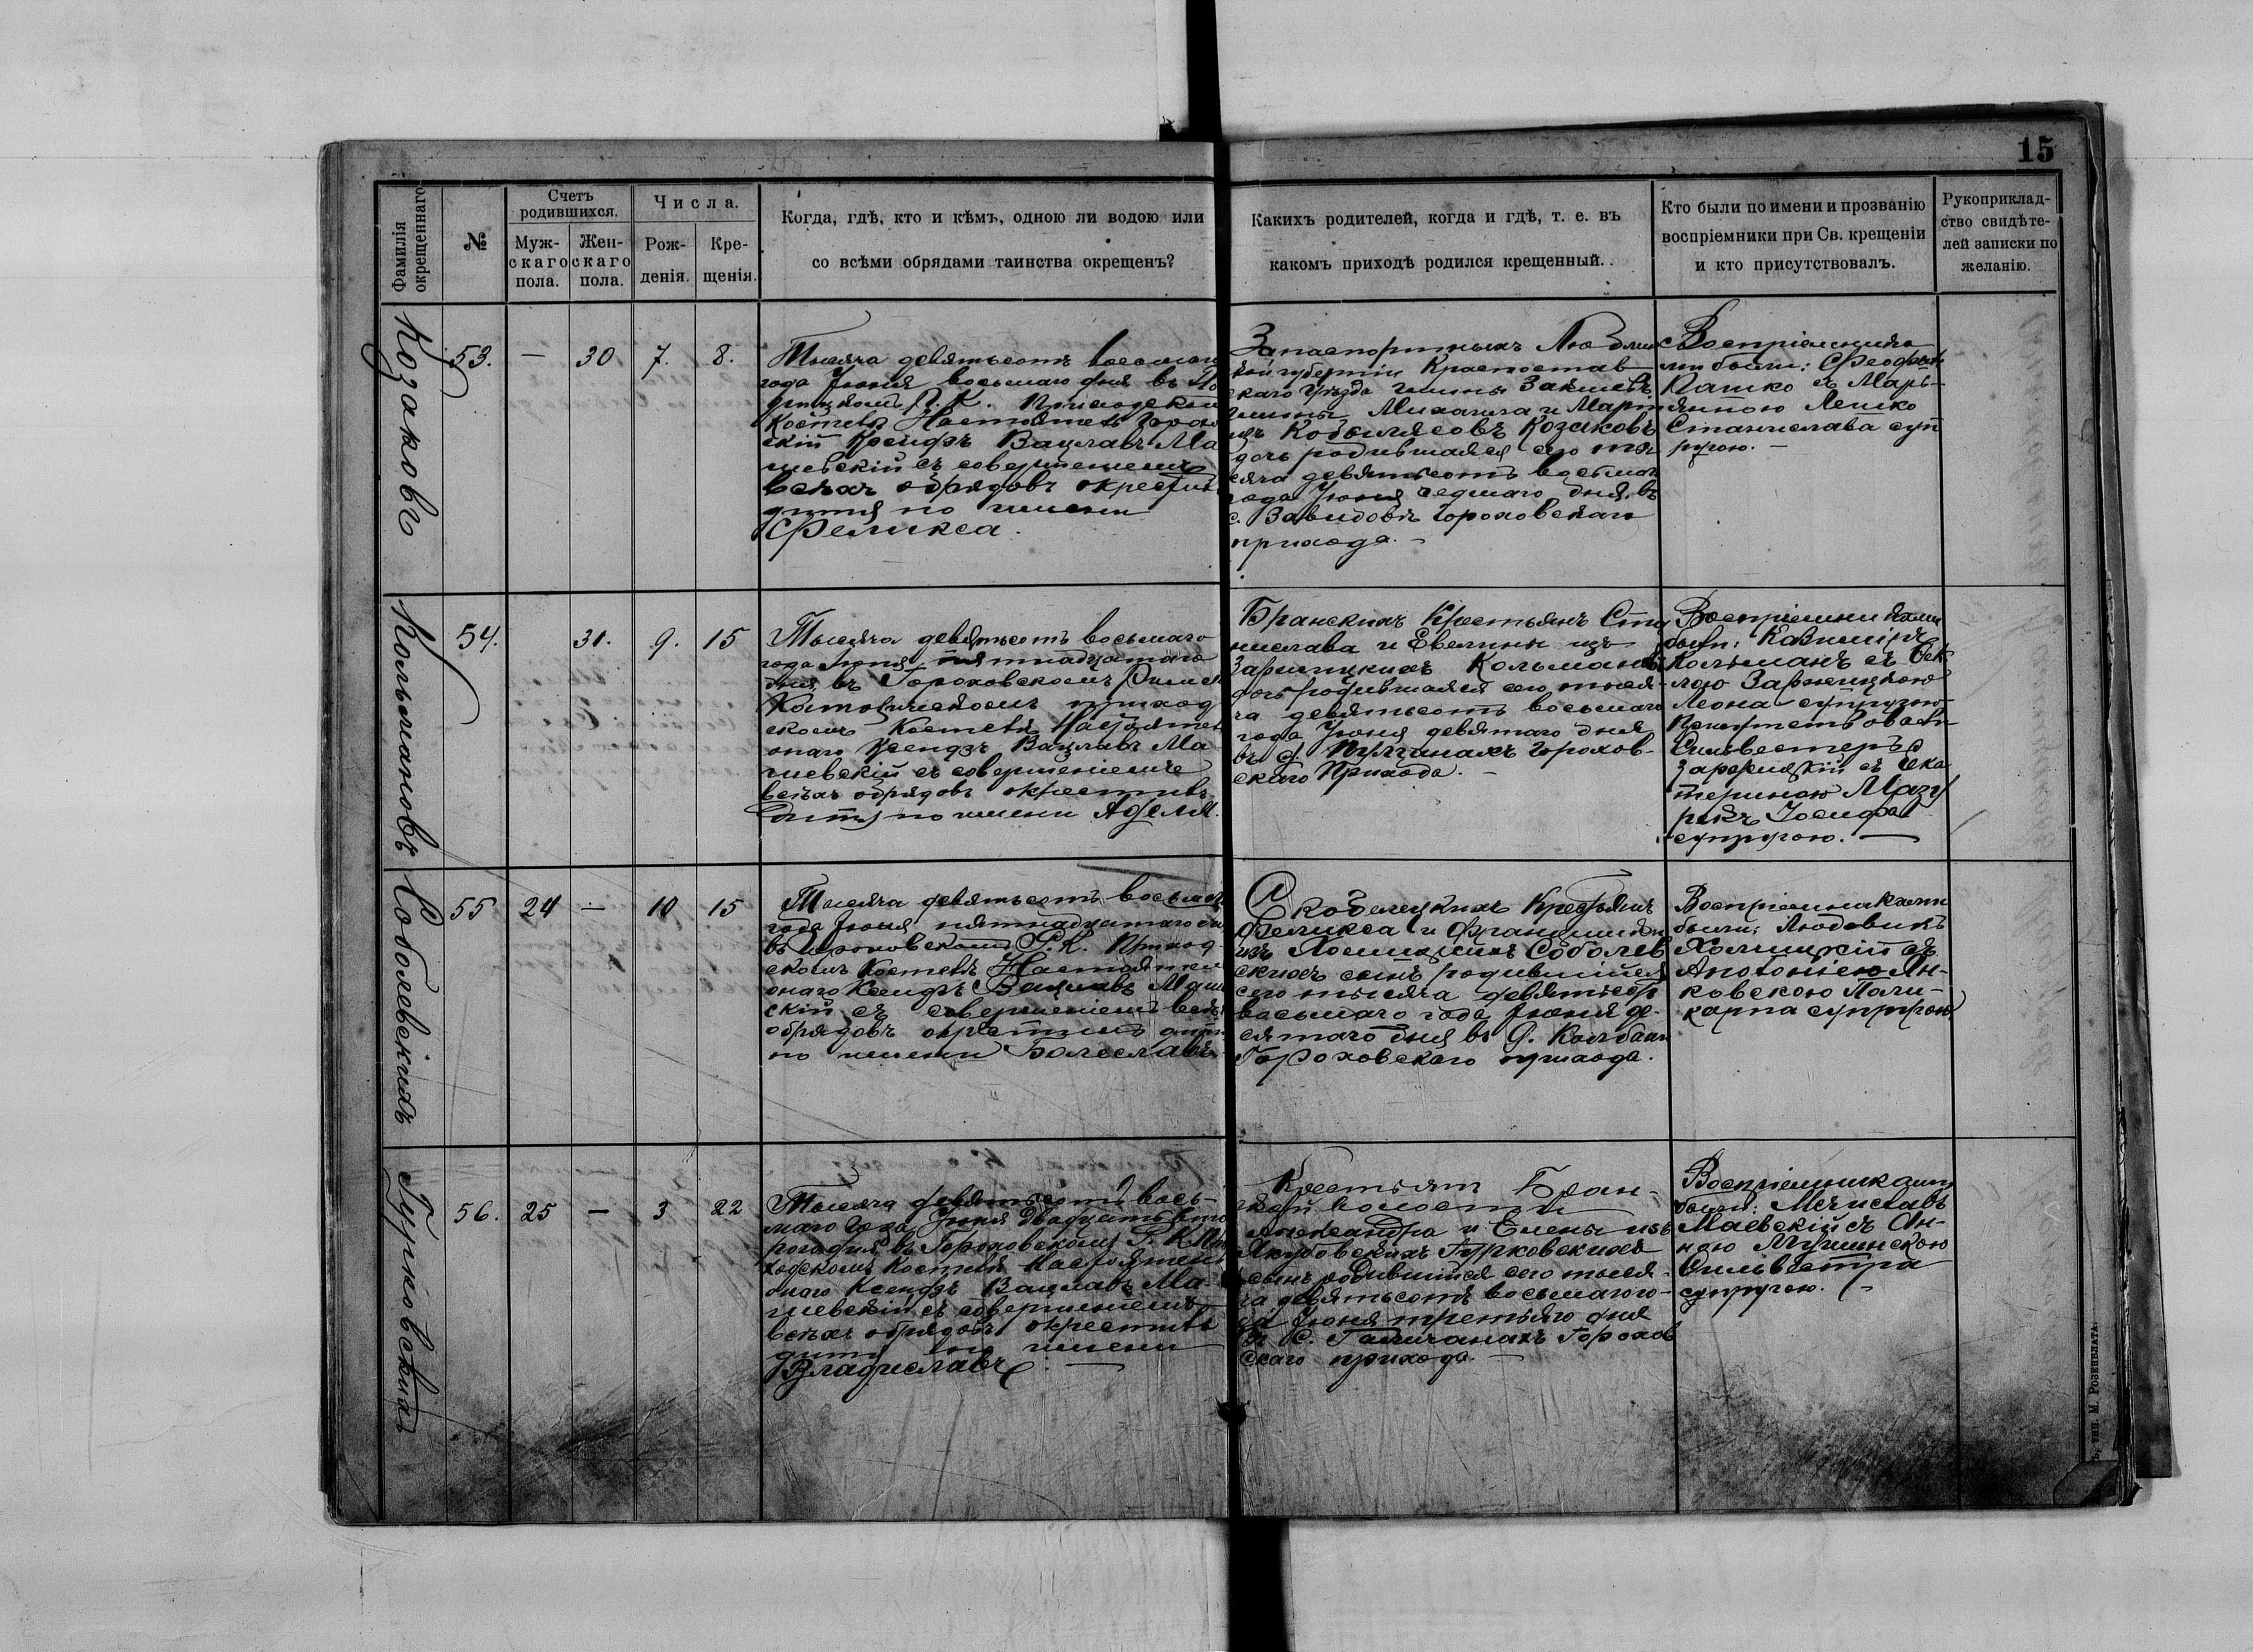 15
Фамилія окрещеннаго
№
Счетъ родившихся.
Муж-
скаго
пола.
Жен-
скаго
пола.
Числа.
Рож-
денія.
Кре-
щенія.
Когда, гдѣ, кто и кѣмъ, одною ли водою или
со всѣми обрядами таинства окрещенъ?
Какихъ родителей, когда и гдѣ, т. е. въ
какомъ приходѣ родился крещенный.
Кто были по имени и прозванію
воспріемники при Св. крещеніи
и кто присутствовалъ.
Рукоприклад-
ство свидѣте-
лей записки по
желанію.
Козаковъ
53. — 30 7. 8.
Тысяча девятьсотъ
года Іюня восьмаго дня въ
Р. К. Приходском
Костелѣ Настоятель
скій Ксендзъ Вацлавъ Ма
шевскій съ совершеніемъ
всѣхъ обрядовъ окрестилъ
дитя по имени
Феликса.
Запаспортныхъ Люблин
ской губерніи Красностав
скаго уѣзда гмины
Михаила и Март
изъ Козаковъ
дочь родившаяся сего ты
сяча девятьсотъ восьмаго
года Іюня седмаго дня въ
с. Завидовѣ Гороховскаго
прихода. —
Воспріемника
ми были:
Пашко съ Марь-
янною Лешко
Станислава суп
ругою. —
Кольмановъ
54. 31. 9. 15
Тысяча девятьсотъ восьмаго
года Іюня пятнадцатаго
дня въ Гороховскомъ Римск
Католическомъ приход
скомъ Костелѣ Настоятель
онаго Ксендзъ Вацлавъ Ма
шевскій съ совершеніемъ
всѣхъ обрядовъ окрестилъ
дитя по имени Аделя.
Бранскихъ Крестьянъ Ста
нислава и Евелины изъ
Заржицкихъ Кольмановъ
дочь родившаяся сего тыся-
ча девятьсотъ восьмаго
года Іюня девятаго дня
въ с. Горохов-
скаго Прихода. —
Воспріемниками
были: Казиміръ
Кольманъ съ Фек
лою Заржицкою
Леона супругою
Сильвестеръ
съ Ека
териною Мазу
рекъ Іосифа
супругою. —
Соболевскихъ
55 24 — 10 15
Тысяча девятьсотъ восьмаго
года Іюня пятнадцатаго дн
въ Гороховскомъ Р. К. Приход-
скомъ Костелѣ Настоятель
онаго Ксендзъ Вацлавъ Маш
скій съ совершеніемъ всѣх
обрядовъ окрестилъ дитя
по имени Болеславъ
Скобелецкихъ Крестьянъ
Феликса и Францишки
изъ Соболев
скихъ сынъ родившійся
сего тысяча девятьсотъ
восьмаго года Іюня де-
сятаго дня въ
Гороховскаго прихода.
Воспріемниками
были: Людовикъ
съ
Аполоніею Ян-
ковскою Поли-
карпа супругою
Гурковскихъ
56. 25 — 3 22
Тысяча девятьсотъ вось-
маго года Іюня двадцать вто
рого дня въ Гороховскомъ Р. К. Пр
ходскомъ Костелѣ Настоятель
онаго Ксендзъ Вацлавъ Ма-
шевскій съ совершеніемъ
всѣхъ обрядовъ окрестилъ
дитя по имени
Владиславъ. —
Крестьянъ Бран-
ской волости
Александра и Елены изъ
Якубовскихъ Гурковскихъ
сынъ родившійся сего тыся-
ча девятьсотъ восьмаго го-
да Іюня третьяго дня
въ с. Галичанахъ Горохов
скаго прихода. —
Воспріемниками
были: Мечиславъ
Маевскій съ Ан-
ною
Сильвестра
супругою. —
тип. М. Розенблата.